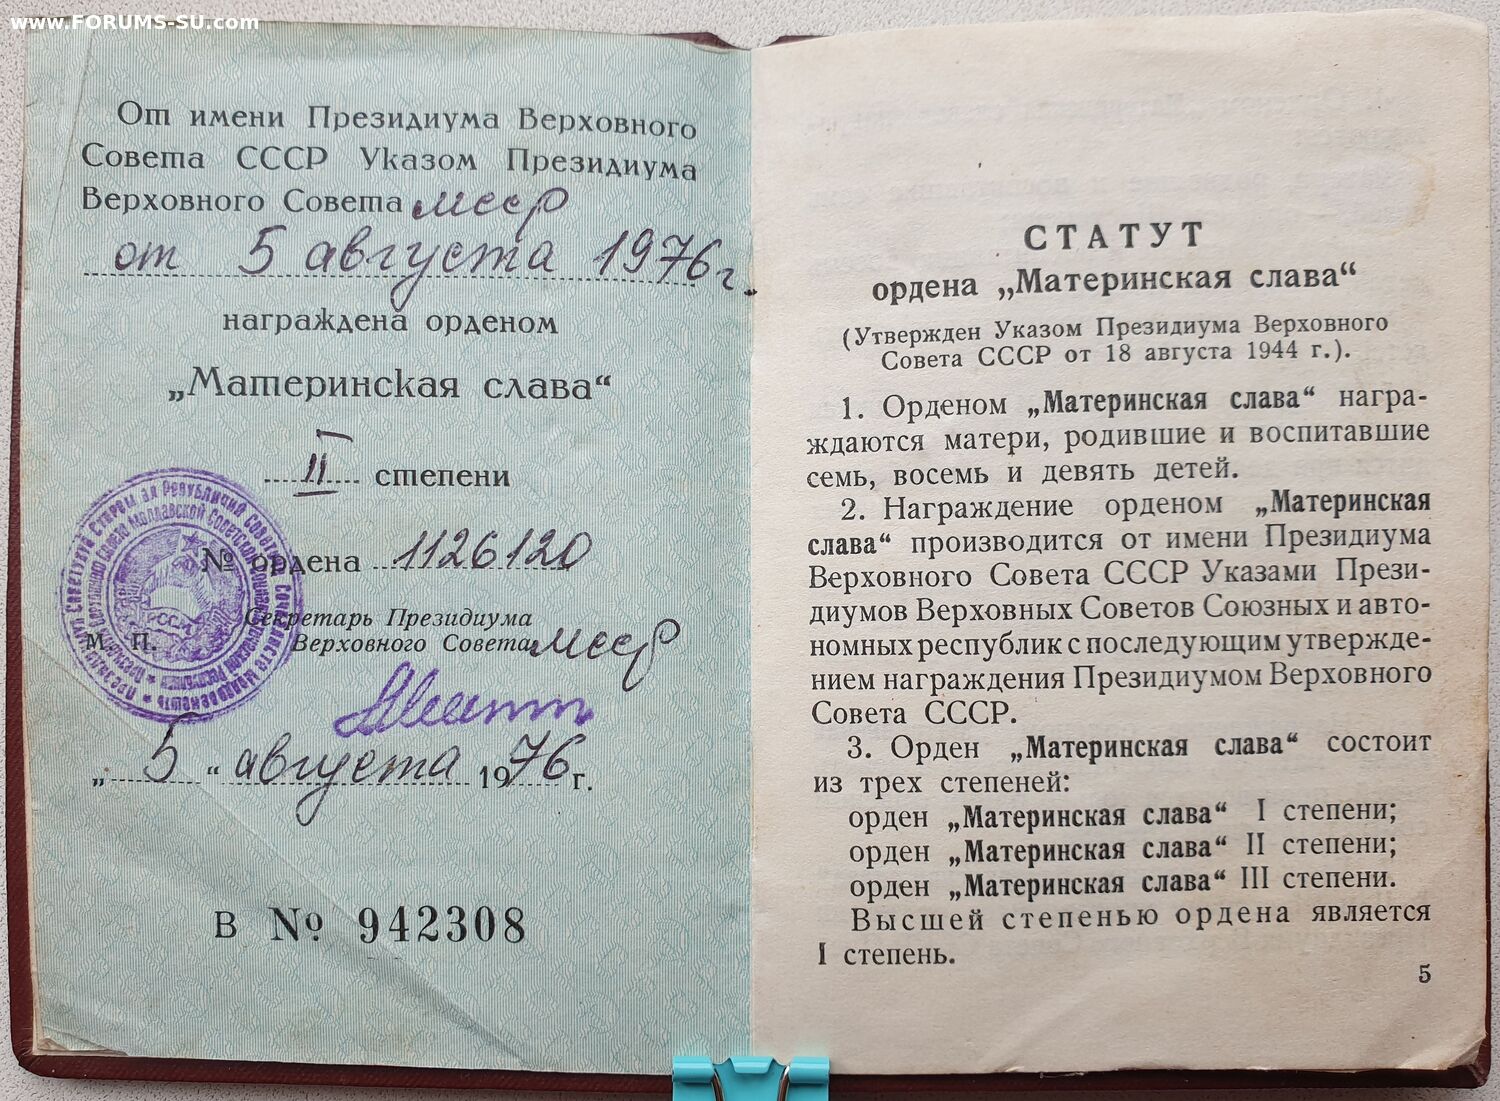 www.FORUMS-SU.com
От имени Президиума Верховного
Совета СССР Указом Президиума
Верховного Совета МССР
от 5 августа 1976 г.
награждена орденом
„Материнская слава“
II степени
№ ордена 1126120
Секретарь Президиума
Верховного Совета МССР
М. П.
„ 5 “ августа 1976 г.
В № 942308
СТАТУТ
ордена „Материнская слава“
(Утвержден Указом Президиума Верховного
Совета СССР от 18 августа 1944 г.).
1. Орденом „Материнская слава“ награ-
ждаются матери, родившие и воспитавшие
семь, восемь и девять детей.
2. Награждение орденом „Материнская
слава“ производится от имени Президиума
Верховного Совета СССР Указами Прези-
диумов Верховных Советов Союзных и авто-
номных республик с последующим утвержде-
нием награждения Президиумом Верховного
Совета СССР.
3. Орден „Материнская слава“ состоит
из трех степеней:
орден „Материнская слава“ I степени;
орден „Материнская слава“ II степени;
орден „Материнская слава“ III степени.
Высшей степенью ордена является
I степень.
5